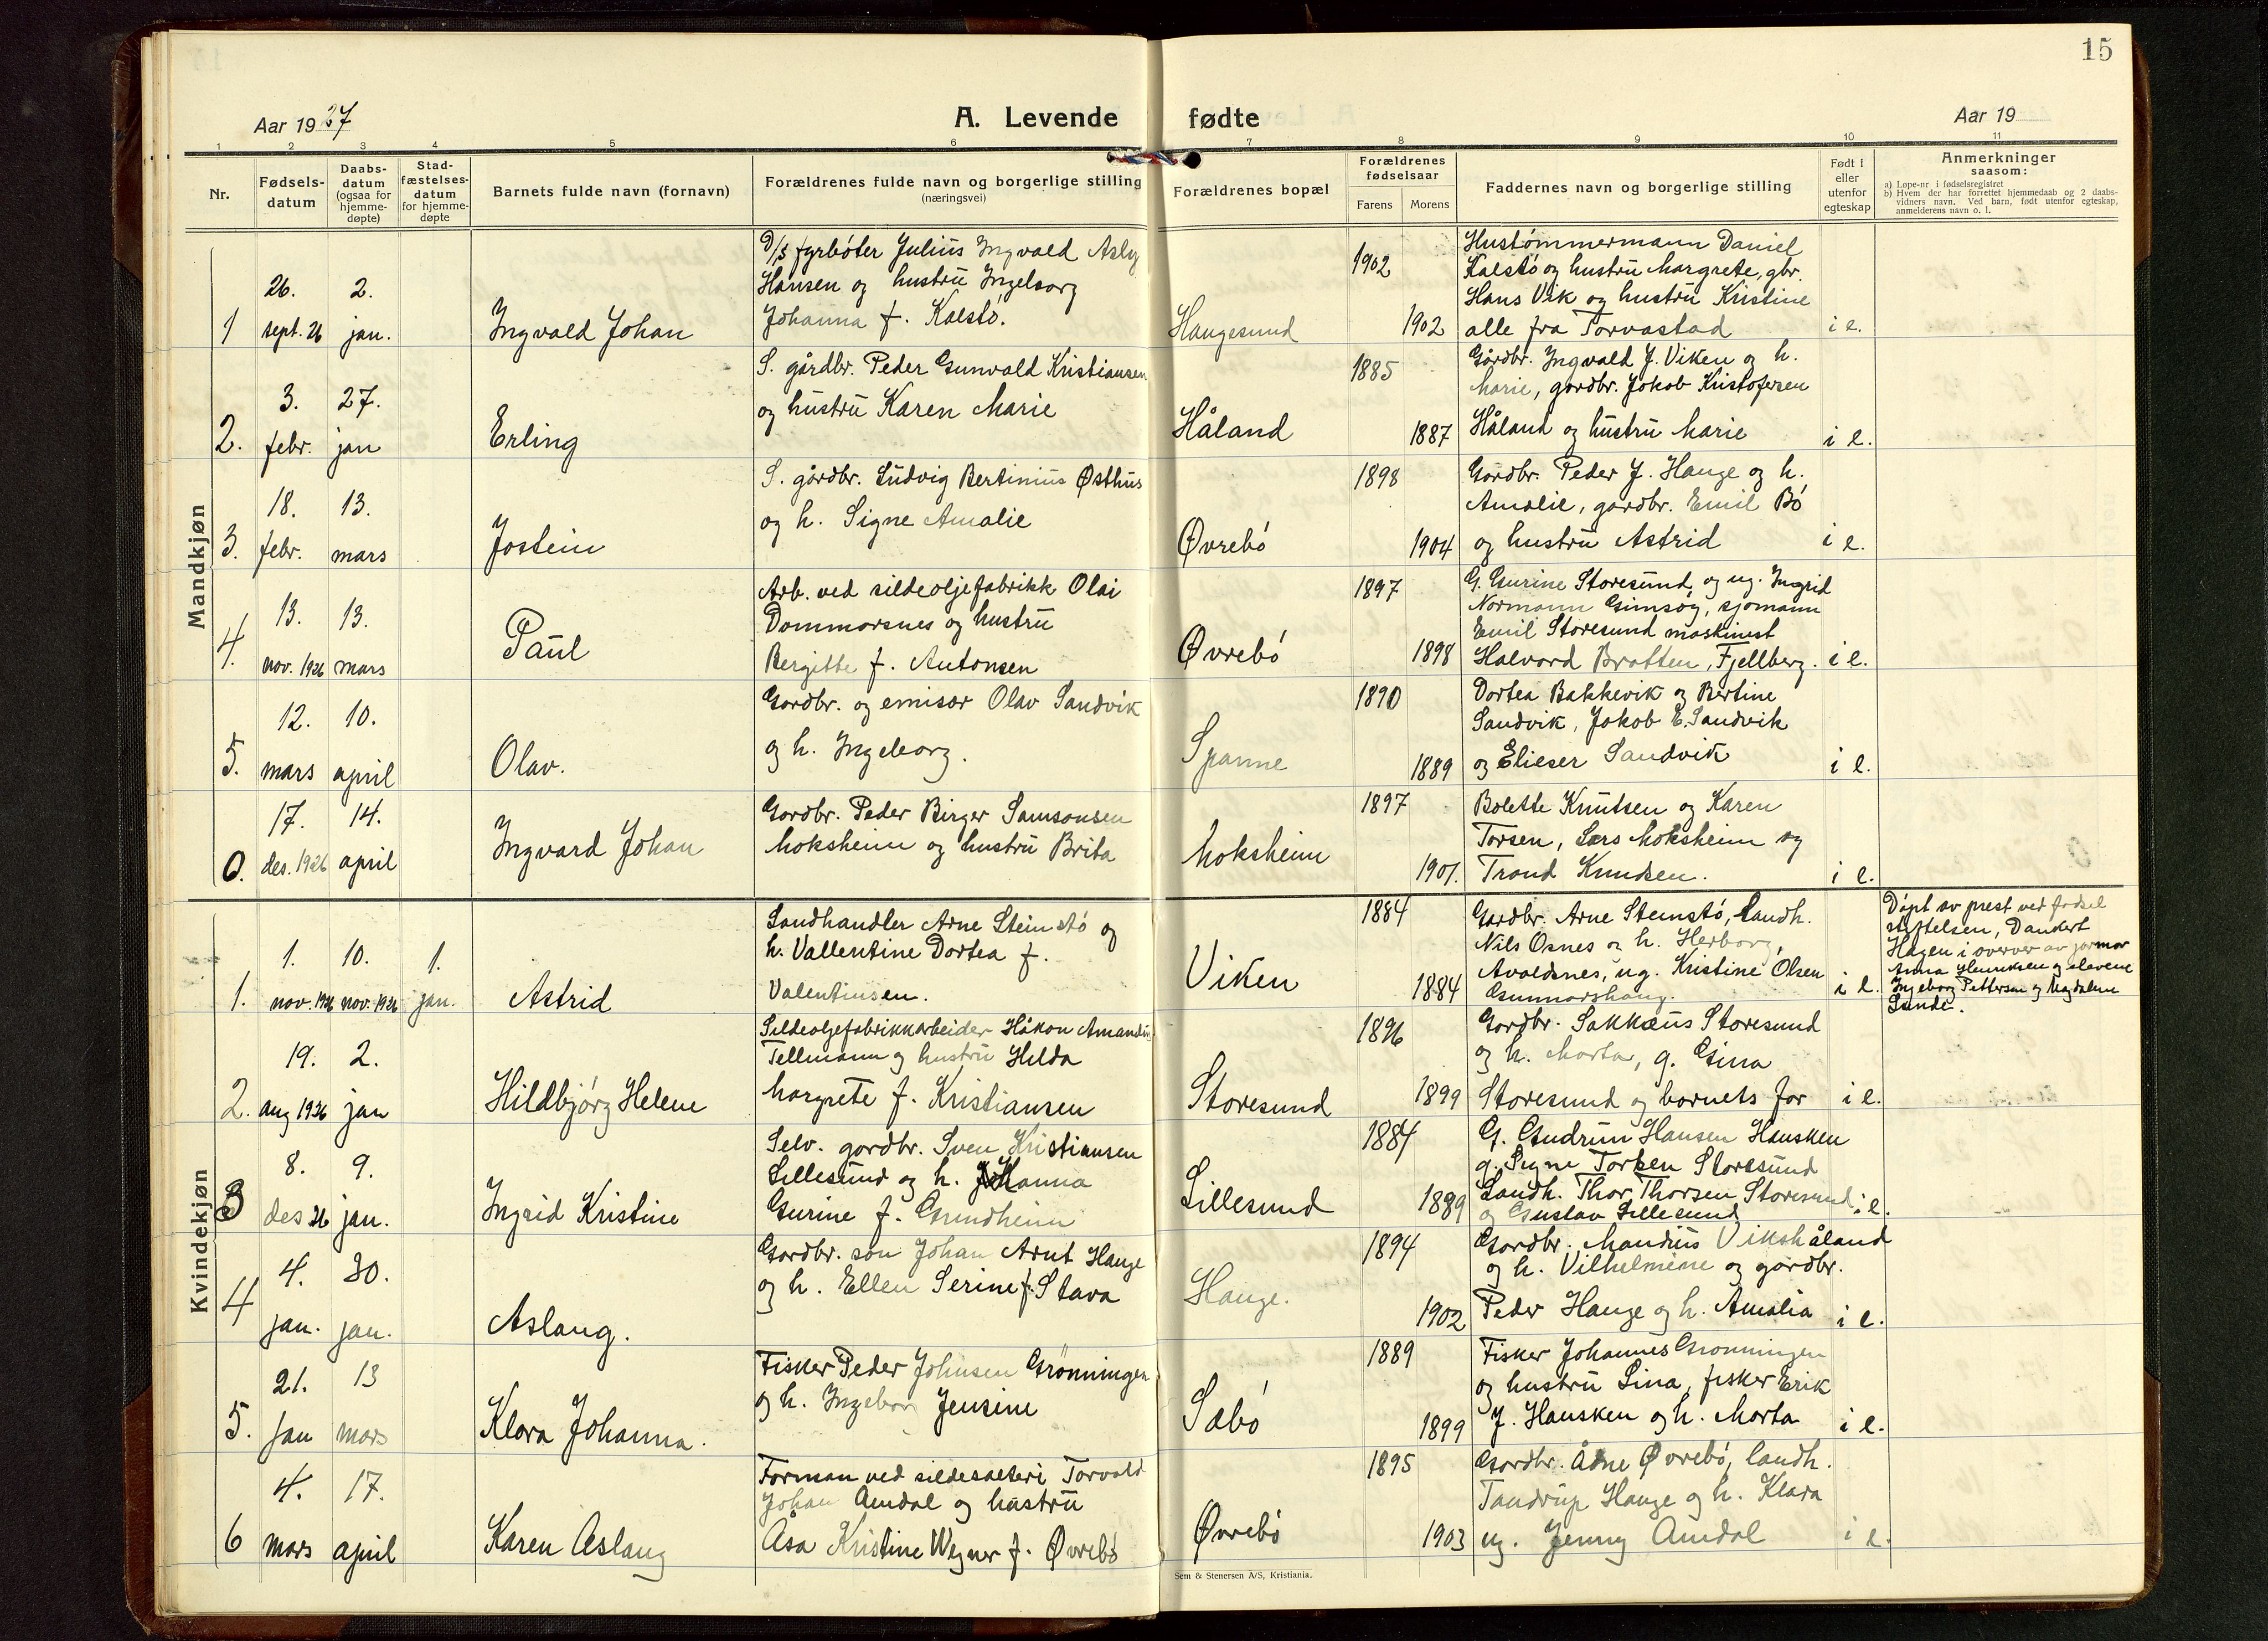 15
Aar 1927
A. Levende
fødte
Aar 19
1 2 3 4 5 6 7 8 9 10 11
Nr.
Fødsels-
datum
Daabs-
datum
(ogsaa for
hjemme-
døpte)
Stad-
fæstelses-
datum
for hjemme-
døpte
Barnets fulde navn (fornavn)
Forældrenes fulde navn og borgerlige stilling
(næringsvei)
Forældrenes bopæl
Forældrenes
fødselsaar
Farens Morens
Faddernes navn og borgerlige stilling
Født i
eller
utenfor
egteskap
Anmerkninger
saasom:
a) Løpe-nr i fødselsregistret
b) Hvem der har forrettet hjemmedaab og 2 daabs-
vidners navn. Ved barn, født utenfor egteskap,
anmelderens navn o. l.
Mandkjøn
1
26.
sept. 26
2.
jan.
Ingvald Johan
D/s fyrbøter Julius Ingvald
Hansen og hustru Ingeborg
Johanna f. Kalstø.
Haugesund
1902
1902
Hustømmermann Daniel
Kalstø og hustru Margrete, gbr.
Hans Vik og hustru Kristine
alle fra Torvastad
i e.
2.
3.
febr.
27.
jan
Erling
S. gårdbr. Peder Gunvald Kristiansen
og hustru Karen Marie
Håland
1885
1887
Gårdbr. Ingvald J. Viken og h.
Marie, gardbr. Jakob Kristofersen
Håland og hustru Marie
i e.
3.
18.
febr.
13.
mars
Jostein
S. gårdbr. Ludvig Bertinius Østhus
og h. Signe Amalie
Øvrebö
1898
1904
Gårdbr. Peder J. Hauge og h.
Amalie, gardbr. Emil Bö
og hustru Astrid
i e.
4.
13.
nov. 1926
13.
mars
Paul
Arb. ved sildeoljefabrikk Olai
Dommarsnes og hustru
Bergitte f. Antonsen
Øvrebö
1897
1898
G. Gurine Storesund, og ug. Ingrid
Normann Gimsöy, sjømann
Emil Storesund maskinist
Halvard Bratten, Fjellberg.
i e.
5.
12.
mars
10.
april
Olav.
Gardbr. og emisær Olav Sandvik
og h. Ingeborg.
Spanne
1890
1889
Dortea Bakkevik og Bertine
Sandvik, Jakob E. Sandvik
og Elieser Sandvik
i e.
6.
17.
des. 1926
14.
april
Ingvard Johan
Gardbr. Peder Birger Samsonsen
Moksheim og hustru Brita
Moksheim
1897
1901.
Bolette Knutsen og Karen
Torsen, Lars Moksheim og
Trond Knudsen.
i e.
Kvindekjøn
1.
1.
nov. 1926
10.
nov. 1926
1.
jan.
Astrid
Landhandler Arne Steinstö og
h. Vallentine Dortea f.
Valentinsen.
Viken
1884
1884
Gardbr. Arne Steinstö, landh.
Nils Osnes og h. Herborg,
Avaldsnes, ug. Kristine Olsen
Gunnarshaug.
i e.
Döpt av prest ved fødsel
stiftelsen, Dankert
Hagen i overver av jormor
Anna Henriksen og elevene
Ingeborg Pettersen og Magdalene
Lunde.
2.
19.
aug 1926
2.
jan
Hildbjörg Helene
Sildeoljefabrikkarbeider Håkon Amandus
Tellmann og hustru Hilda
Margrete f. Kristiansen
Storesund
1896
1899
Gardbr. Sakkæus Storesund
og h. Marta, g. Gina
Storesund og barnets far
i e.
3
8.
des 26
9.
jan.
Ingrid Kristine
Selv. gardbr. Sven Kristiansen
Lillesund og h. Johanna
Gurine f. Grindheim
Lillesund
1884
1889
G. Gudrun Hansen Hausken
g. Signe Torsen Storesund
Landh. Thor Thorsen Storesund
og Gustav Lillesund
i e.
4
4.
jan.
30.
jan.
Aslaug.
Gardbr. søn Johan Arnt Hauge
og h. Ellen Serine f. Stava
Hauge.
1894
1902
Gardbr. Mandius Vikshåland
og h. Vilhelmine og gardbr.
Peder Hauge og h. Amalia
i e.
5.
21.
jan
13
mars
Klara Johanna.
Fisker Peder Johnsen Grönningen
og h. Ingeborg Jensine
Sæbö
1889
1899
Fisker Johannes Grønningen
og hustru Lina, fisker Erik
J. Hausken og h. Marta
i e.
6
4.
mars
17.
april
Karen Aslaug
Formann ved sildesalteri Torvald
Johan Amdal og hustru
Åsa Kristine Wegner f. Øvrebö
Øvrebö
1895
1903
Gardbr. Ådne Øvrebö, landh.
Tandrup Hauge og h. Klara
ug. Jenny Amdal
i e.
Sem & Stenersen A/S, Kristiania.